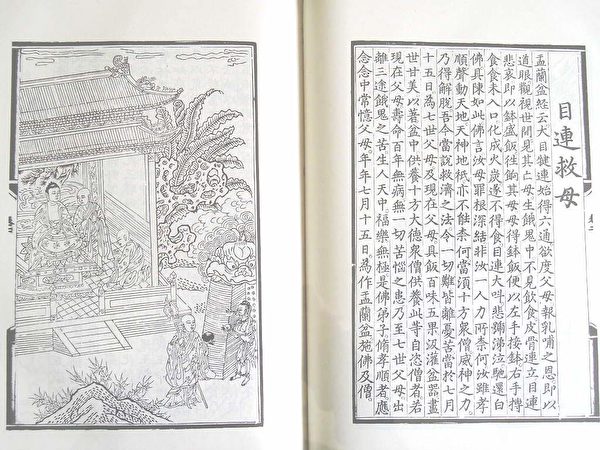 目連救母
盂蘭盆經云大目犍連始得六通欲度父母報乳哺之恩即以
道眼觀視世間見其亡母生餓鬼中不見飲食皮骨連立目連
悲哀即以鉢盛飯往餉其母母得鉢飯便以左手按鉢右手摶
食食未入口化成火炭遂不得食目連大叫悲號涕泣馳還白
佛具陳如此佛言汝母罪根深結非汝一人力所柰何汝雖孝
順聲動天地天神地祇亦不能柰何當須十方衆僧威神之力
乃得解脫吾今當說救濟之法令一切難皆離憂苦當於七月
十五日為七世父母及現在父母具飯百味五果汲灌盆器盡
世甘美以著盆中供養十方大德衆僧供養此等自恣僧者若
現在父母壽命百年無病無一切苦惱之患乃至七世父母出
離三途餓鬼之苦生人天中福樂無極是佛弟子脩孝順者應
念念中常憶父母年年七月十五日為作盂蘭盆施佛及僧